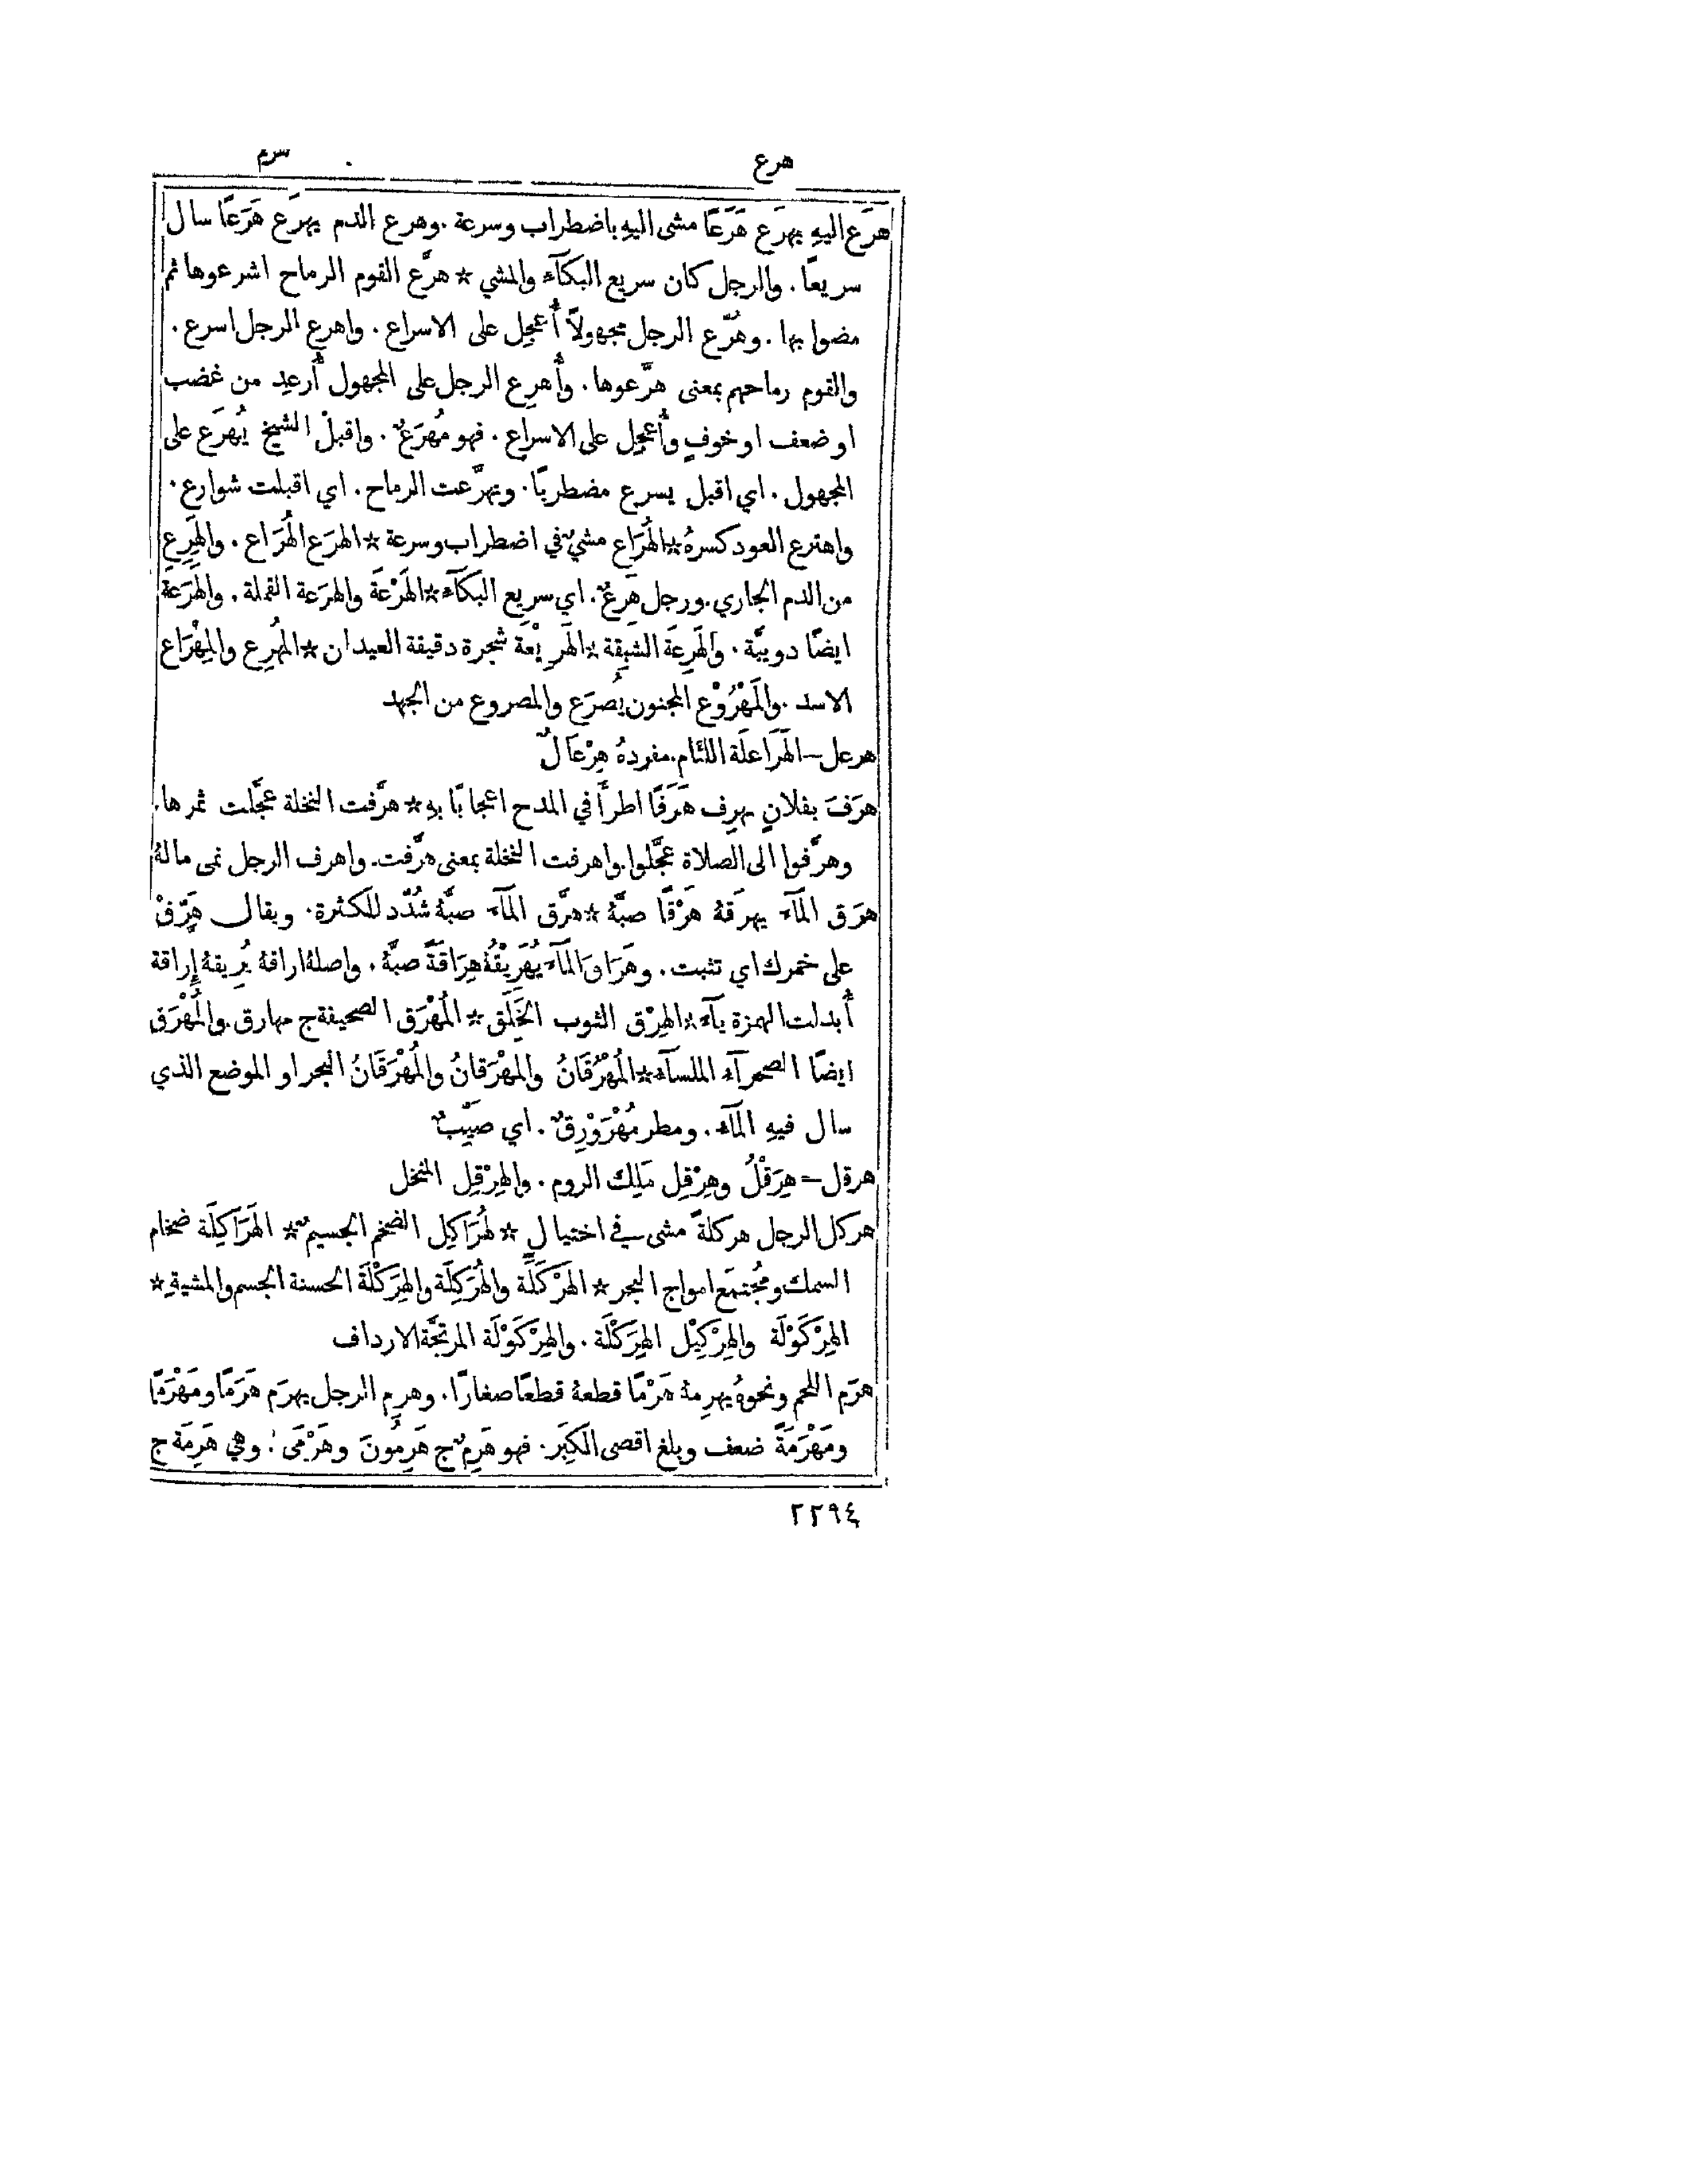 هرع
هرم
هرَع اليهِ يهرَع هَرَعًا مشى اليهِ باضطراب وسرعة . وهرع الدم يهرَع هَرَعًا سال
سريعًا . والرجل كان سريع البكآء والمشي * هرَّع القوم الرماح اشرعوها ثم
مضوا بها . وهُرّع الرجل مجهولاً أُعجِل على الاسراع . واهرع الرجل اسرع .
والقوم رماحهم بمعنى هرَّعوها . وأُهرِع الرجل على المجهول أُرعِد من غضب
او ضعف او خوفٍ وأُعجِل على الاسراع . فهو مُهرَعٌ . واقبلْ الشيخ يُهرَع على
المجهول . اي اقبل يسرع مضطربًا . وتهرَّعت الرماح . اي اقبلت شوارع .
واهترع العود كسرهُ * الهُرَاع مشيٌ في اضطراب وسرعة * الهرَع الهُرَاع . والهَرِع
من الدم الجاري . ورجل هَرِعٌ . اي سريع البكآء * الهَرْعَة والهرَعة القملة . والهَرَعَة
ايضًا دويبَّة . والهَرِعَة الشبِقة * الهَرِيْعَة شجرة دقيقة العيدان * المُهرِع والمِهْرَاع
الاسد . والمَهْرُوْع المجنون يُصرَع والمصروع من الجهد
هرعل – الهَرَاعلَة اللئام . مفردهُ هِرْعَالٌ
هرَفَ بفلانٍ يهرِف هَرَفًا اطرأَ في المدح اعجابًا بهِ * هرَّفت النخلة عجَّلت ثمرها .
وهرَّفوا الى الصلاة عجَّلوا . واهرفت النخلة بمعنى هرَّفت . واهرف الرجل نمى مالهُ
هرَق المآء يهرَقهُ هَرْقًا صبَّهُ * هرَّق المآء صبَّهُ شُدّد للكثرة . ويقال هَرِّقْ
على خمرك اي تثبت . وهَرَاقَ المآء يُهَرِيْقُهُ هِرَاقَةً صبَّهُ . واصلهُ اراقهُ يُرِيقهُ إِراقة
أُبدلت الهمزة يآء * الهِرْق الثوب الخَلَق * المُهْرَق الصحيفة ج مهارق . والمُهْرَق
ايضًا الصحرآء الملسآء * المُهْرُقَانُ والمَهْرَقانُ والمُهْرَقَانُ البحر او الموضع الذي
سال فيهِ المآء . ومطر مُهْرَوْرِقٌ . اي صَيِّبٌ
هرقل – هِرَقْلُ وهِرْقِل مَلِك الروم . والهِرْقِل المنخل
هركل الرجل هركلةً مشى في اختيالٍ * لهُرَاكِل الضخم الجسيمٌ * الهَرَاكِلَة ضخام
السمك ومُجتمَع امواج البحر * الهَرْكَلَّة والهُرَكِلَة والهِرَكْلَة الحسنة الجسم والمشيةِ *
الهِرْكَوْلَة والهِرْكِيْل الهِرَكْلَة . والهِرْكَوْلَة المرتجَّة الارداف
هرَم اللحم ونحوهُ يهرِمهُ هَرْمًا قطعهُ قطعًا صغارًا . وهرِم الرجل يهرَم هَرَمًا ومَهْرَمًا
ومَهْرَمَةً ضعف وبلغ اقصى الكِبَر . فهو هَرِمٌ ج هَرِمُونَ وهَرْمَى . وهي هَرِمَة ج
٢٢٩٤